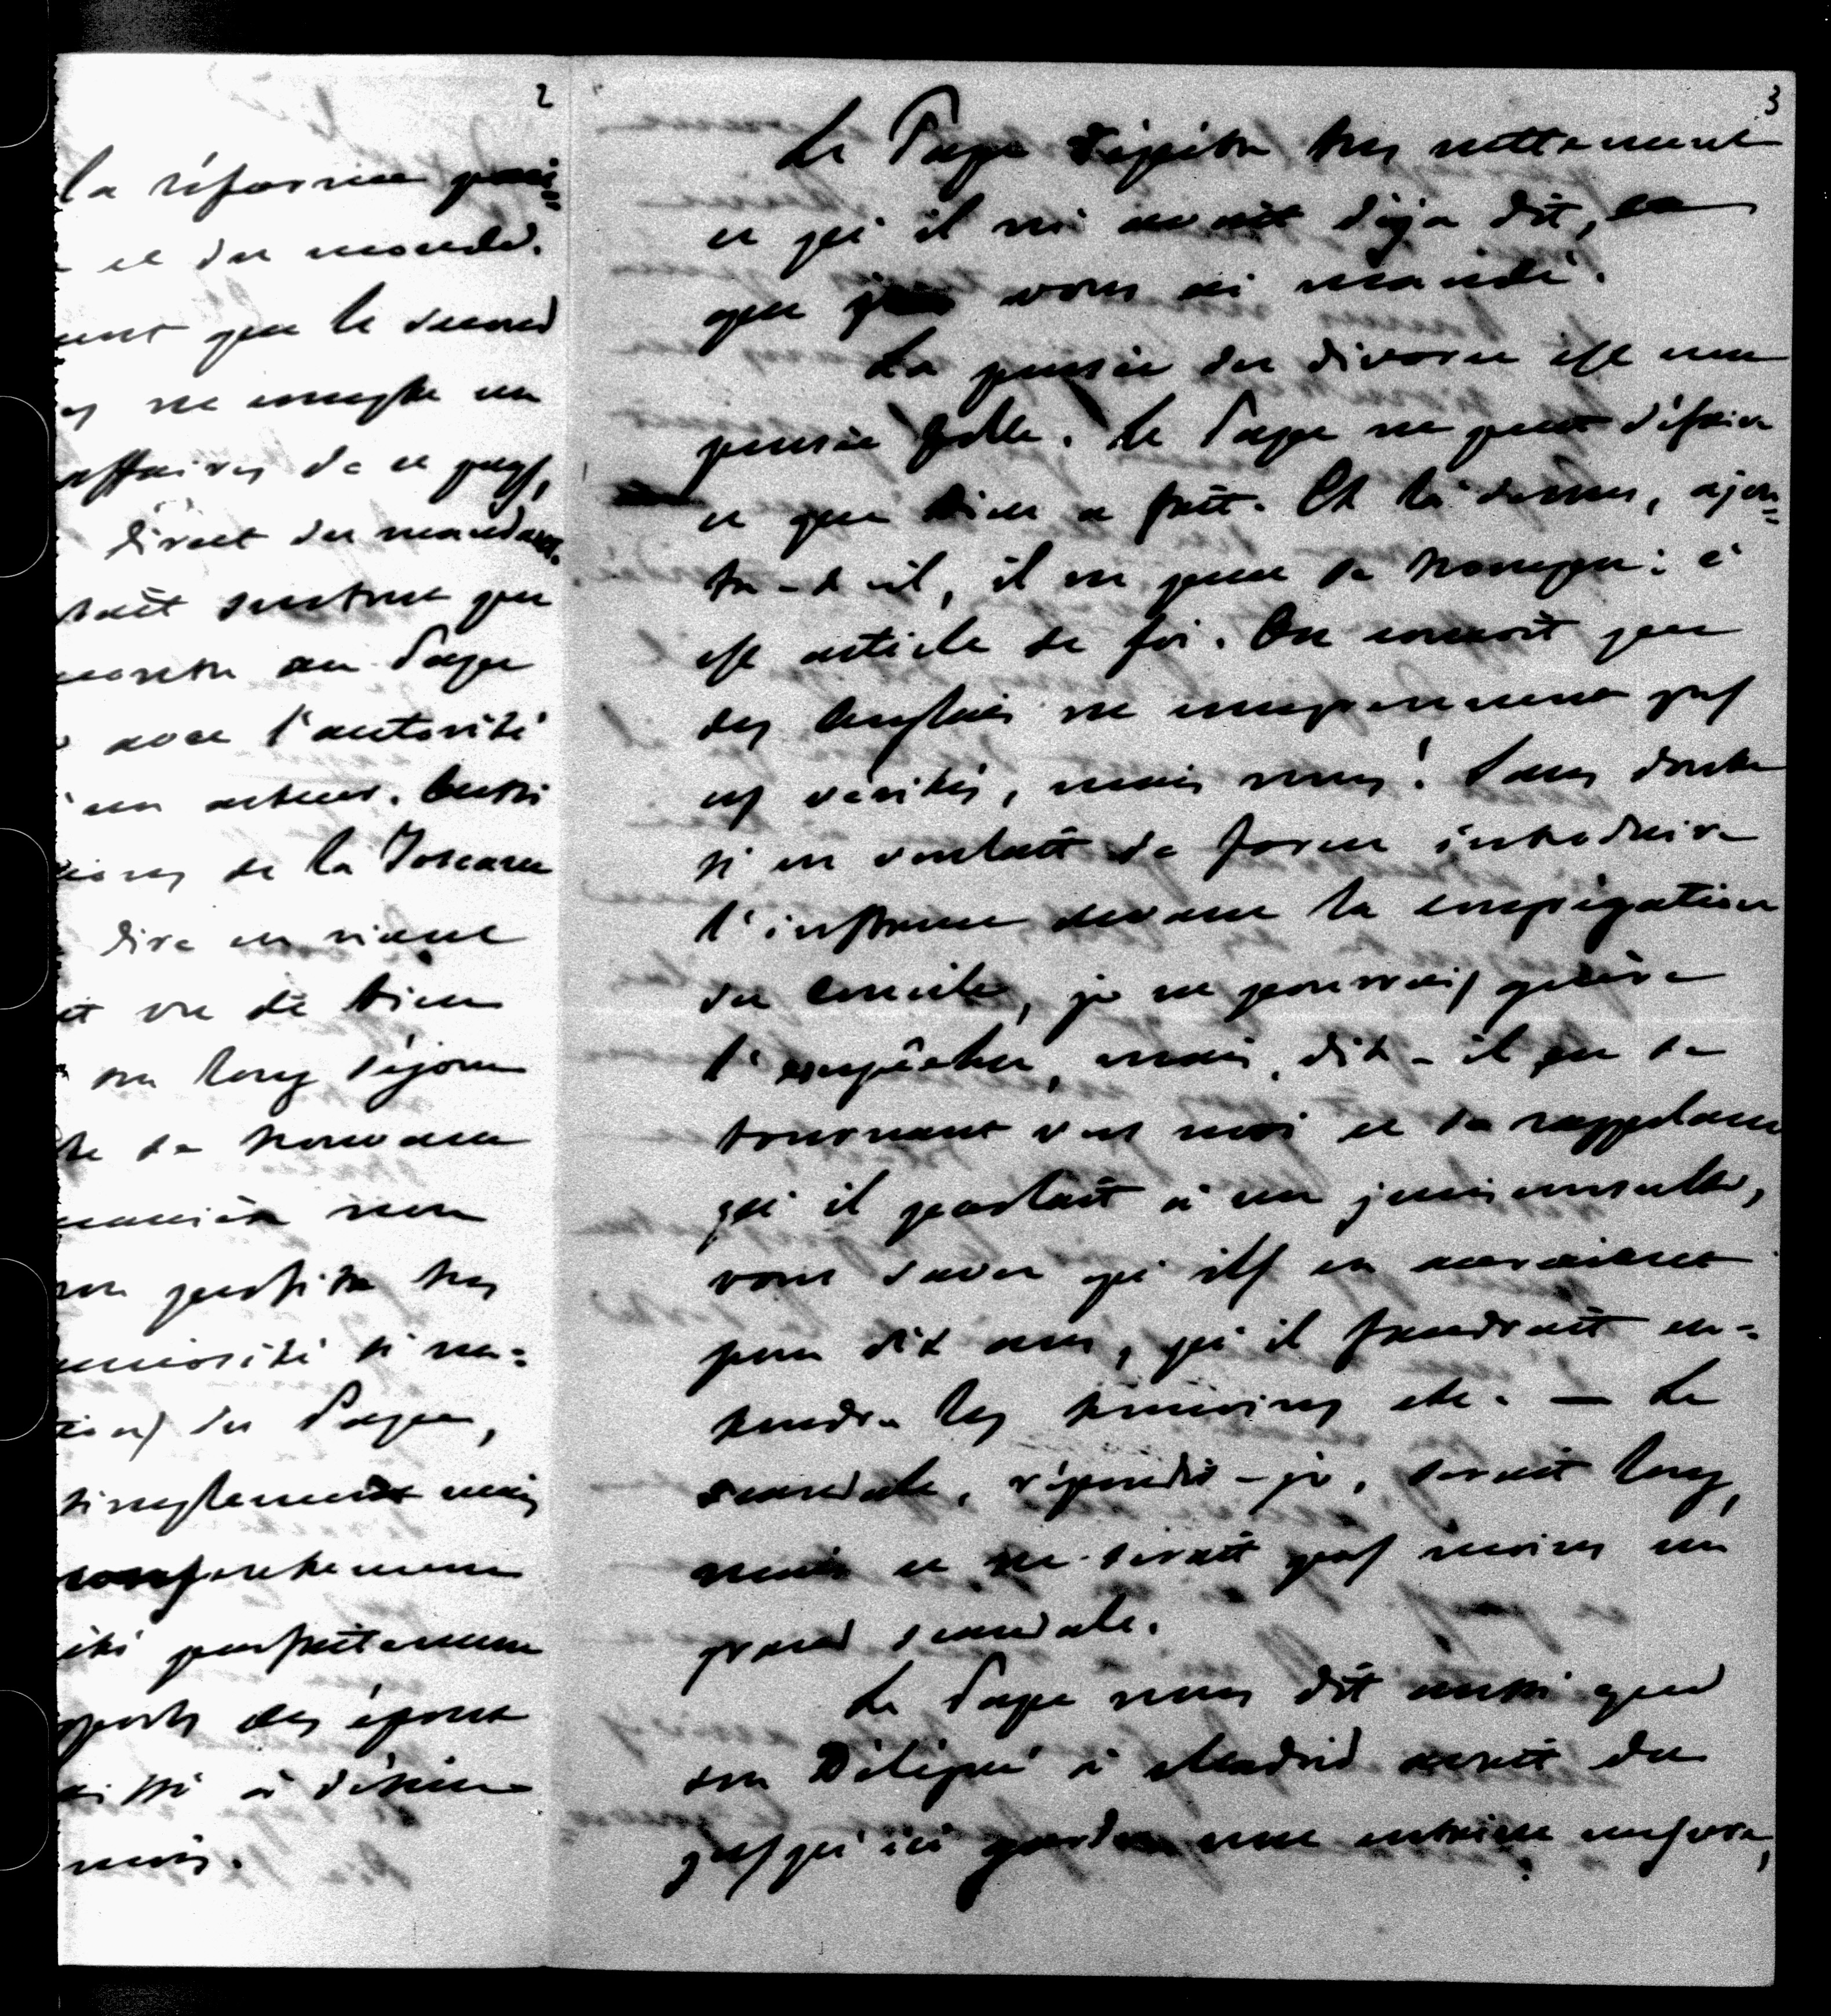 2
la réforme
et du monde.
que le second
ne compte un
affaires de ce pays,
direct du
surtout que
au Pape
avec l'autorité
un acteur. Aussi
de la Toscane
dire en riant
vu de bien
un long séjour
de nouveau
manière non
très
curiosité si na=
du Pape,
simplement mais
été parfaitement
des époux
à
mois.
3
Le Pape répéta très nettement
ce qu'il m'avait déjà dit, et
que je vous ai mandé.
La pensée du divorce est une
pensée folle. Le Pape ne peut défaire
ce que Dieu a fait. Et là dessus, ajou=
ta-t-il, il ne peut se tromper: c'
est article de foi. On conçoit que
des Anglais ne comprennent pas
ces vérités, mais nous! Sans doute
si on voulait de force introduire
l'instance devant la congrégation
du Concile, je ne pourrais guère
l'empêcher, mais, dit-il en se
tournant vers moi et se rappelant
qu'il parlait à un jurisconsulte,
vous savez qu'ils en auraient
pour dix ans, qu'il faudrait en=
tendre les témoins etc. — Le
scandale, répondis-je, serait long,
mais ce ne serait pas moins un
grand scandale.
Le Pape nous dit aussi que
son Délégué à Madrid avait du
jusqu'ici garder une extrême mesure,